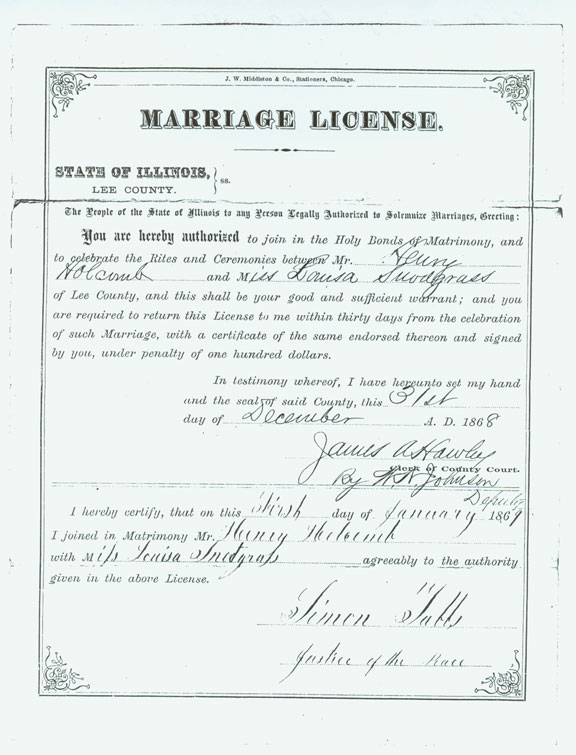 J. W. Middleton & Co., Stationers, Chicago.
MARRIAGE LICENSE.
STATE OF ILLINOIS, } ss.
LEE COUNTY.
The People of the State of Illinois to any Person Legally Authorized to Solemnize Marriages, Greeting:
You are hereby authorized to join in the Holy Bonds of Matrimony, and
to celebrate the Rites and Ceremonies between Mr. Henry
Holcomb and Miss Louisa Snodgrass
of Lee County, and this shall be your good and sufficient warrant; and you
are required to return this License to me within thirty days from the celebration
of such Marriage, with a certificate of the same endorsed thereon and signed
by you, under penalty of one hundred dollars.
In testimony whereof, I have hereunto set my hand
and the seal of said County, this 31st
day of December A. D. 1868
James A Hawley
Clerk of County Court.
By W. H. Johnson
Deputy
I hereby certify, that on this First day of January 1869
I joined in Matrimony Mr. Henry Holcomb
with Miss Louisa Snodgrass agreeably to the authority
given in the above License.
Simon
Justice of the Peace